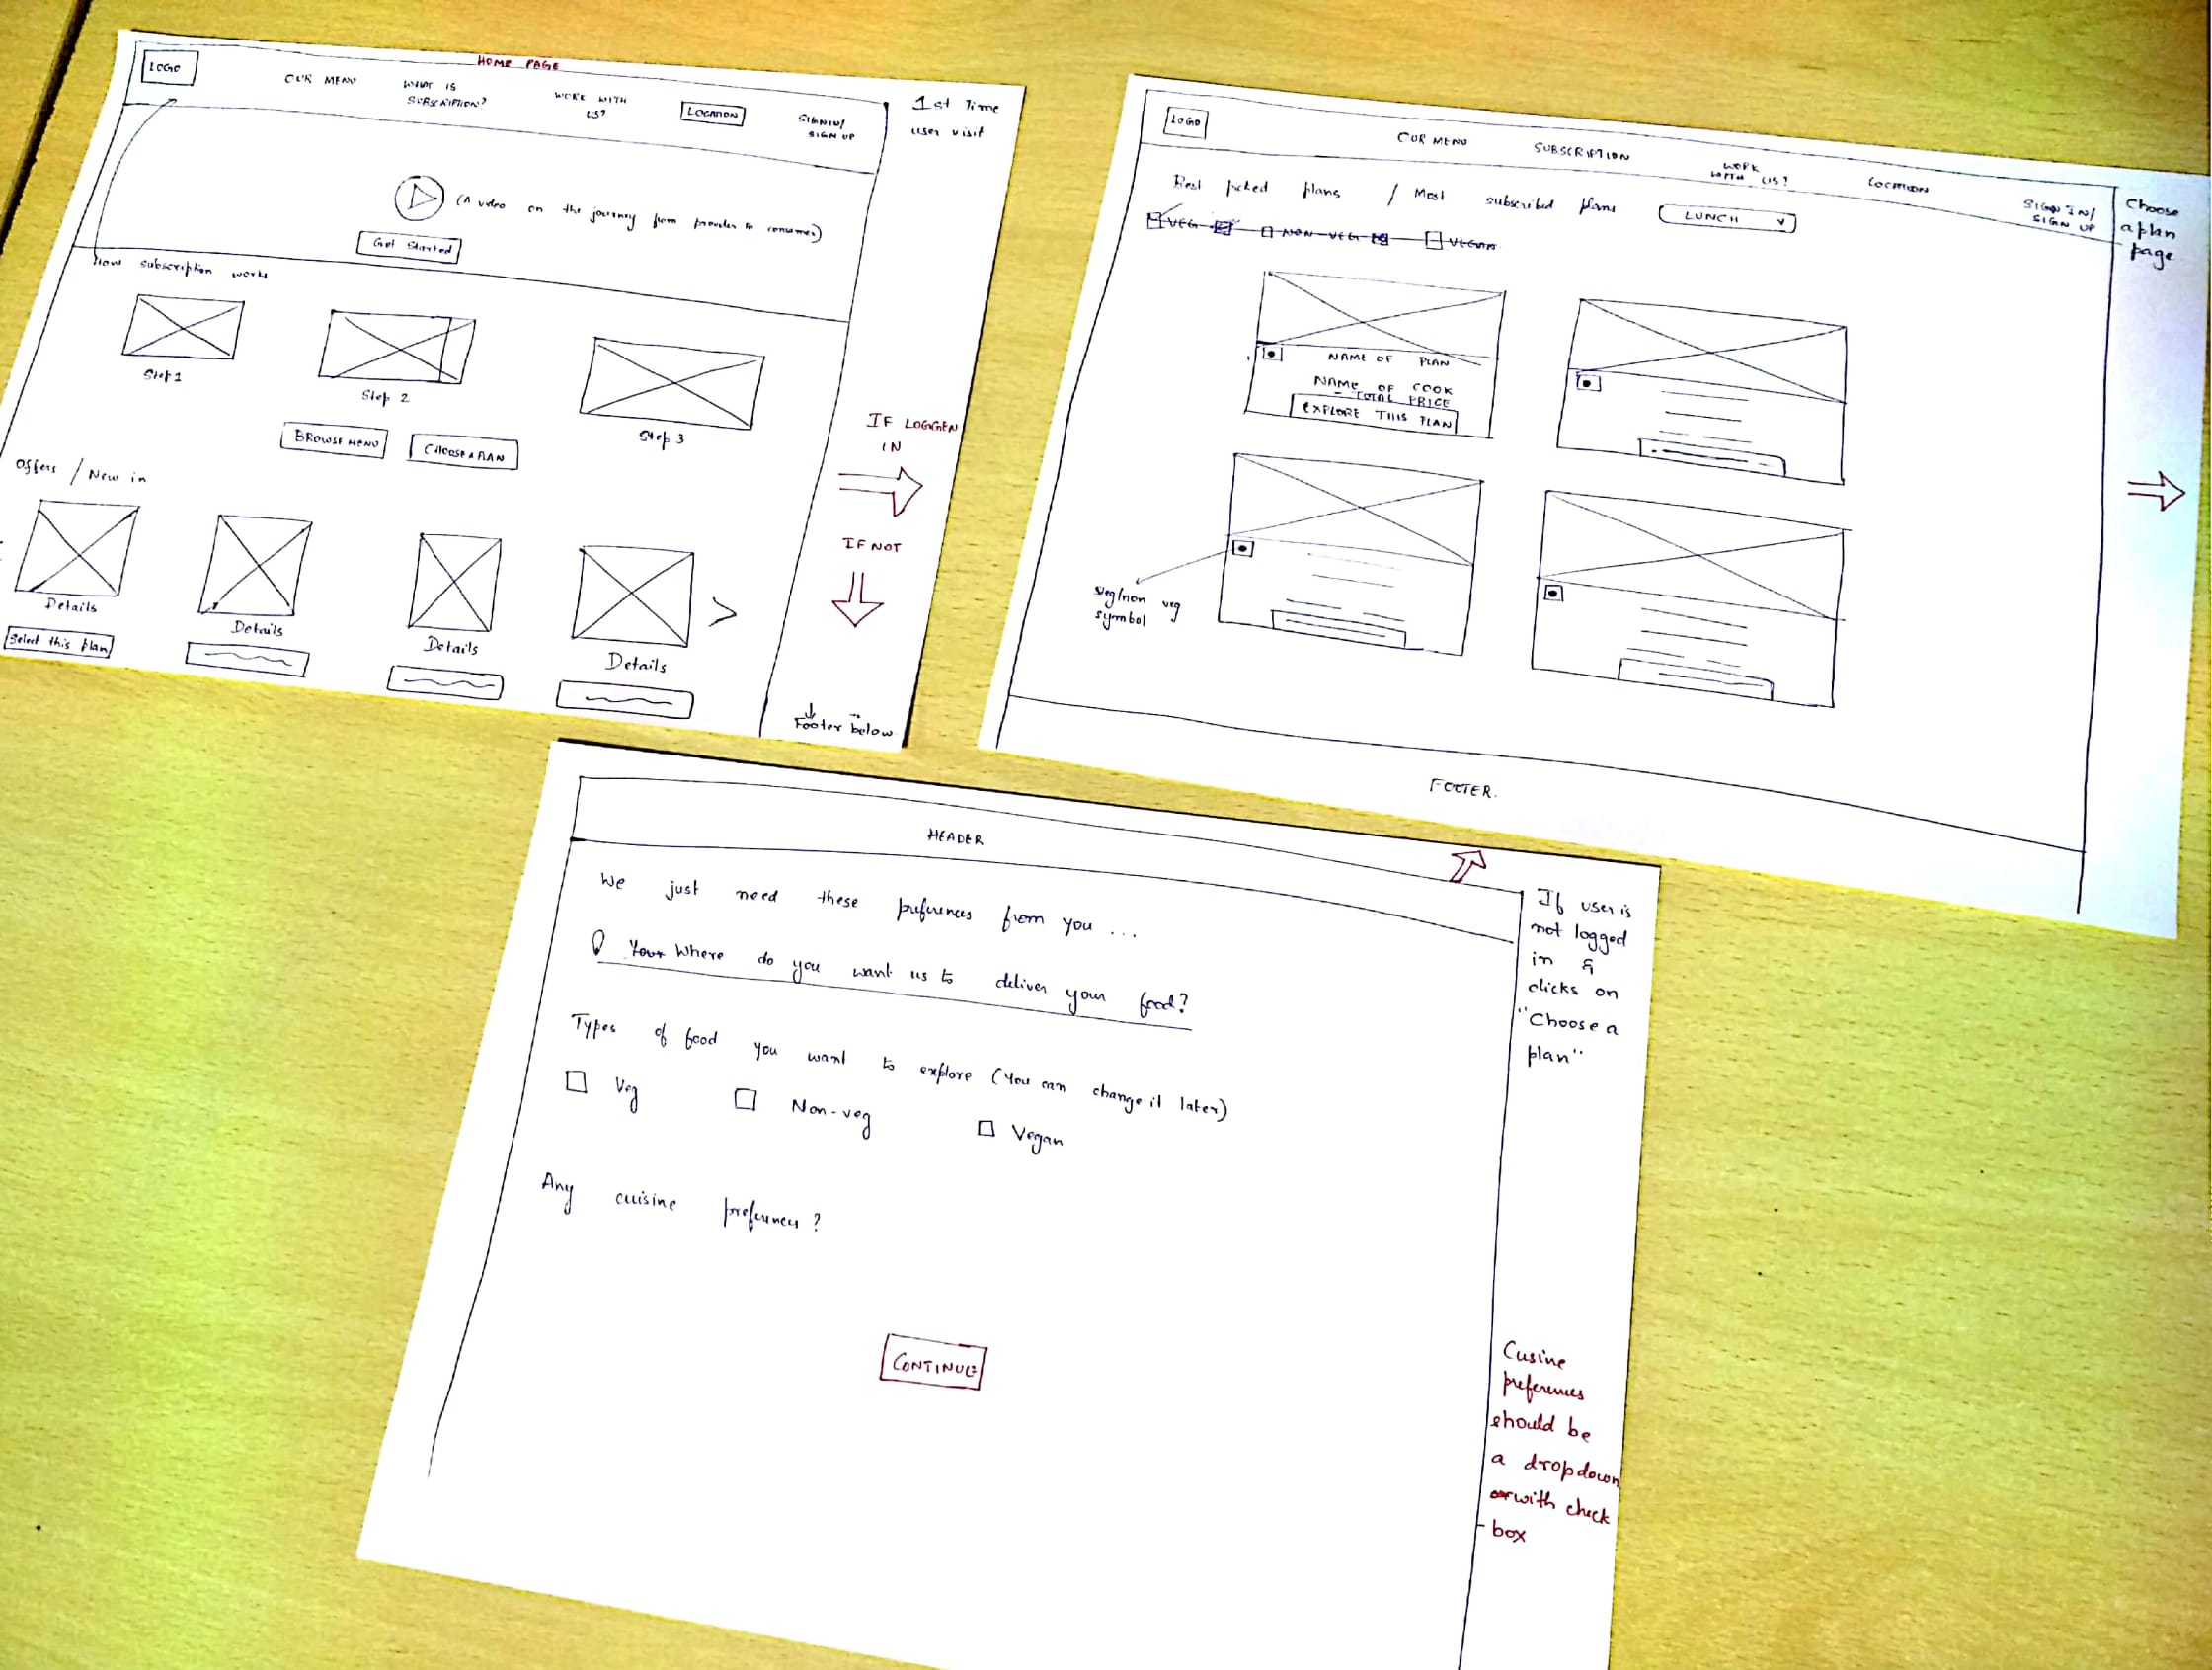 HOME PAGE
LOGO
OUR MENU
WHAT IS
SUBSCRIPTION?
WORK WITH
US?
LOCATION
SIGNIN/
SIGN UP
1st Time
user visit
(A video on the journey from provider to consumer)
Get Started
How subscription works
Step 1
Step 2
Step 3
BROWSE MENU
CHOOSE A PLAN
IF LOGGEN
IN
IF NOT
Offers / New in
Details
Details
Details
Details
Select this plan
Footer below
LOGO
OUR MENU
SUBSCRIPTION
WORK
WITH US?
LOCATION
SIGN IN/
SIGN UP
Choose
a plan
page
Best picked plans / Most subscribed plans
LUNCH
VEG
NON-VEG
VEGAN
NAME OF PLAN
NAME OF COOK
- TOTAL PRICE
EXPLORE THIS PLAN
veg/non veg
symbol
FOOTER.
HEADER
We just need these preferences from you ...
Your Where do you want us to deliver your food?
Types of food you want to explore (You can change it later)
Veg
Non-veg
Vegan
Any cuisine preferences?
CONTINUE
If user is
not logged
in &
clicks on
"Choose a
plan"
Cusine
preferences
should be
a dropdown
or with check
box